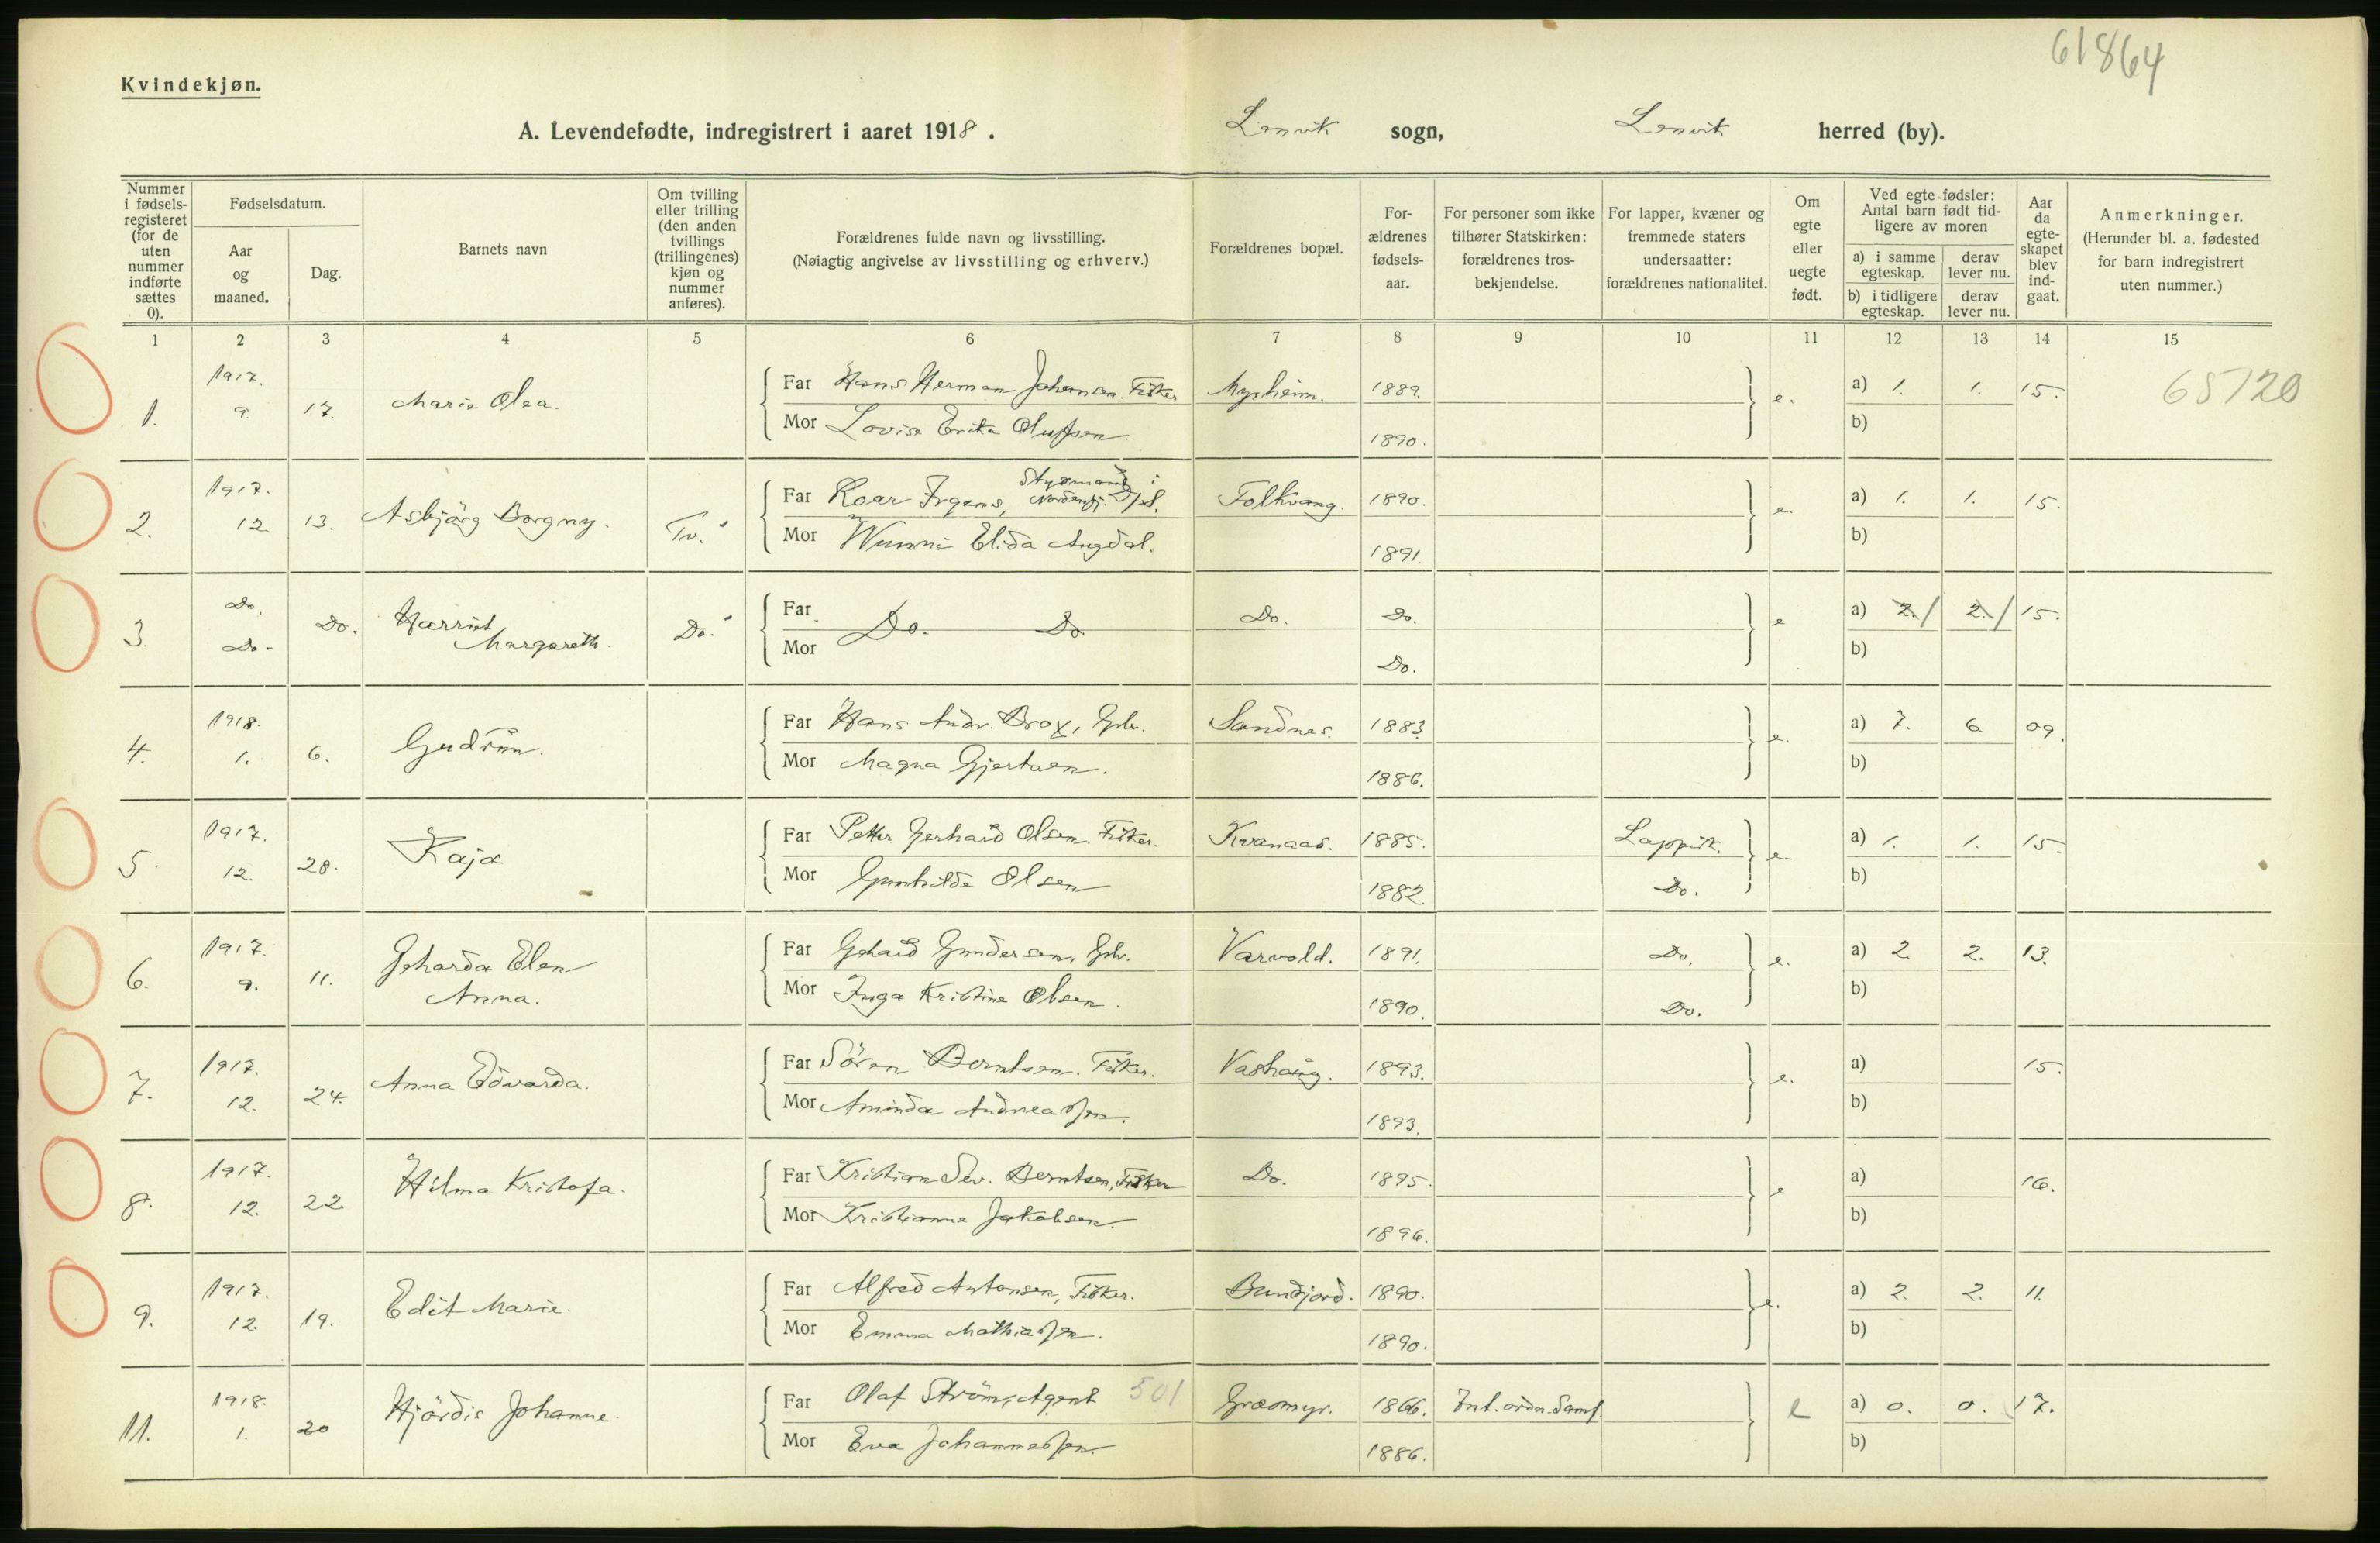 61864
Kvindekjøn.
A. Levendefødte, indregistrert i aaret 1918. Lenvik sogn, Lenvik herred (by).
Nummer i fødsels-registeret (for de uten nummer indførte sættes 0).
Fødselsdatum.
Aar og maaned.
Dag.
Barnets navn
Om tvilling eller trilling (den anden tvillings (trillingenes) kjøn og nummer anføres).
Forældrenes fulde navn og livsstilling.
(Nøiagtig angivelse av livsstilling og erhverv.)
Forældrenes bopæl.
For-ældrenes fødsels-aar.
For personer som ikke tilhører Statskirken: forældrenes tros-bekjendelse.
For lapper, kvæner og fremmede staters undersaatter: forældrenes nationalitet.
Om egte eller uegte født.
Ved egte fødsler: Antal barn født tid-ligere av moren
a) i samme egteskap. derav lever nu.
b) i tidligere egteskap. derav lever nu.
Aar da egte-skapet blev ind-gaat.
Anmerkninger.
(Herunder bl. a. fødested for barn indregistrert uten nummer.)
1 2 3 4 5 6 7 8 9 10 11 12 13 14 15
1. 1917. 9. 17. Marie Olea. Far Hans Herman Johansen. Fisker Mysheim. 1889. e. a) 1. 1. 15. 65120
Mor Lovise Erika Olufsen. 1890. b)
2. 1917. 12. 13. Asbjörg Borgny. Tv. Far Roar Irgens, Styrmand i Nordenfj. D/S. Folkvang. 1890. e. a) 1. 1. 15.
Mor Wunni Elida Angdal. 1891. b)
3. Do. Do. Do. Harriet Margareth. Do. Far Do. Do Do. Do. e a) 2./ 2./ 15.
Mor Do. b)
4. 1918. 1. 6. Gudrun. Far Hans Andr. Brox, Gbr. Sandnes. 1883. e. a) 7. 6 09.
Mor Magna Gjertsen. 1886. b)
5. 1917. 12. 28. Kaja. Far Petter Gerhard Olsen. Fisker. Kvanaas. 1885. Lappisk. e. a) 1. 1. 15.
Mor Gunhilda Olsen 1882. Do. b)
6. 1917. 9. 11. Geharda Elen Anna. Far Gehard Gundersen, Gbr. Varvold. 1891. Do. e. a) 2. 2. 13.
Mor Inga Kristine Olsen. 1890. Do. b)
7. 1917. 12. 24. Anna Edvarda. Far Sören Berntsen. Fisker. Vashaug. 1893. e. a) 15.
Mor Aminda Andreassen. 1893. b)
8. 1917. 12. 22. Hilma Kristofa. Far Kristian Sev. Berntsen, Fisker Do. 1895. e a) 16.
Mor Kristianne Jakobsen. 1896. b)
9. 1917. 12. 19. Edit Marie. Far Alfred Antonsen, Fisker. Bundjord. 1890. e. a) 2. 2. 11.
Mor Emma Mathiassen. 1890. b)
11. 1918. 1. 20 Hjördis Johanne. Far Olaf Ström, Agent 501 Græsmyr. 1866. Int. ordn. Samf. e a) 0. 0. 17.
Mor Eva Johannessen. 1886. b)